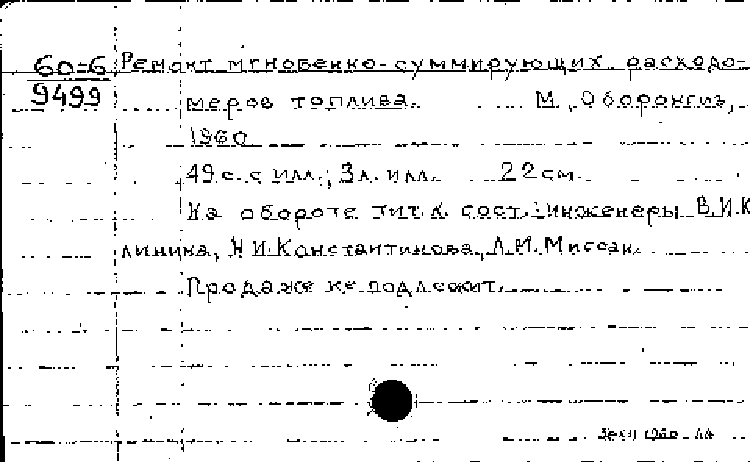 60-6 Ремонт мгновенно-суммирующих расходо-
9499 меров топлива. М., Оборонгиз,
1960
49 с. с илл.; 3 л. илл. 22 см
На обороте тит. л. сост.: инженеры В.И.К
линина, Н.И.Константинова, Л.И.Миссан.
Продаже не подлежит.